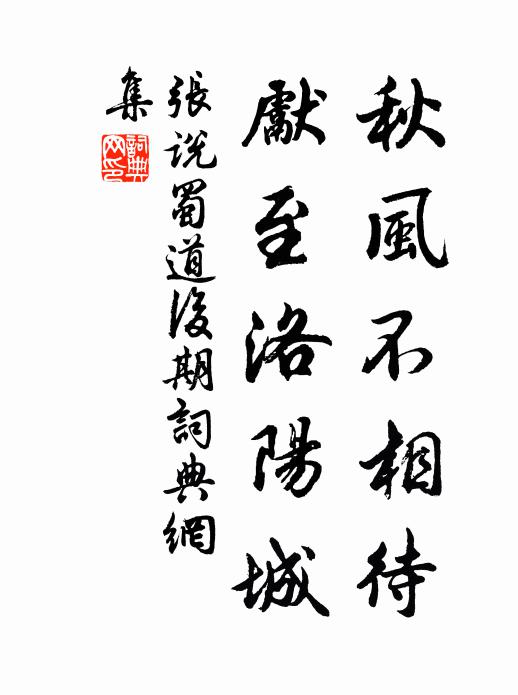 秋風不相待
獻至洛陽城
張說蜀道後期詞典網
集
詞典
网印